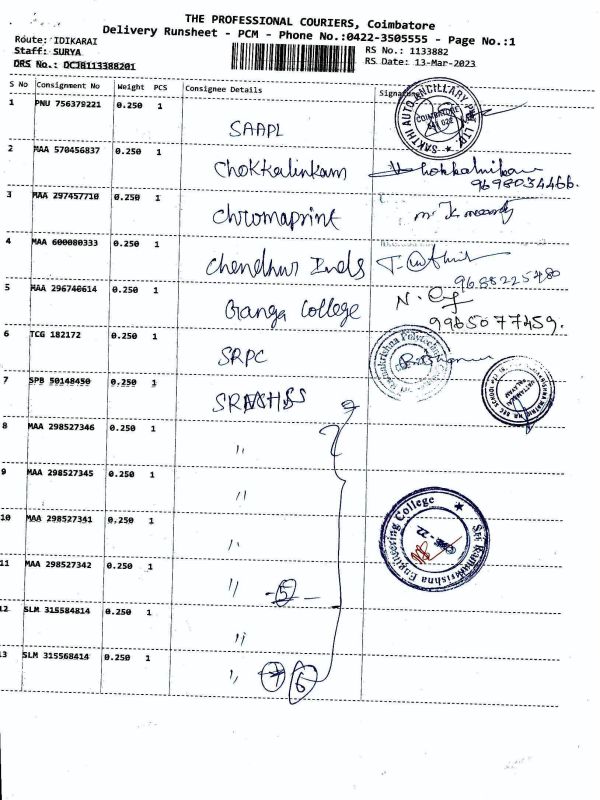 THE PROFESSIONAL COURIERS, Coimbatore
Delivery Runsheet - PCM - Phone No.:0422-3505555 - Page No.:1
Route: IDIKARAI
Staff: SURYA
DRS No.: DCJB113388201
RS No.: 1133882
RS Date: 13-Mar-2023
S No Consignment No Weight PCS Consignee Details Signature
1 PNU 756379221 0.250 1 SAAPL
SAKTHI AUTO ANCILLARY PVT. LTD. COIMBATORE
2 MAA 570456837 0.250 1 Chokkalinkam
9698034466.
3 MAA 297457710 0.250 1 Chromaprint
4 MAA 600080333 0.250 1 Chendhur Inds
9688225480
5 MAA 296740614 0.250 1 Ganga College
9965077459.
6 TCG 182172 0.250 1 SRPC
7 SPB 50148450 0.250 1
8 MAA 298527346 0.250 1 "
9 MAA 298527345 0.250 1 "
10 MAA 298527341 0.250 1 "
Sri Ramakrishna Engineering College
11 MAA 298527342 0.250 1 " 5
12 SLM 315584814 0.250 1 "
13 SLM 315568414 0.250 1 " 6